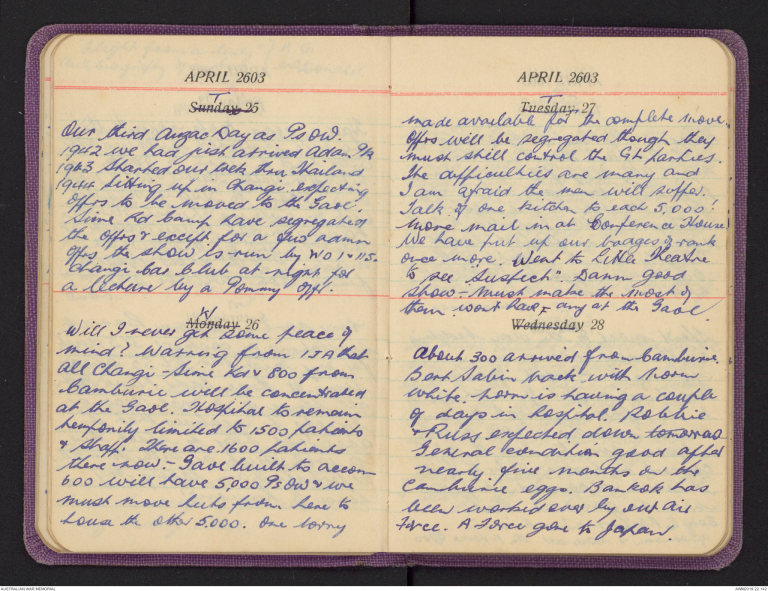 APRIL 2603
T
Sunday 25
Our third Anzac Day as Ps OW.
1942 we had just arrived Adam Pk
1943 Started our trek thru Thailand
1944 Sitting up in Changi expecting
Offrs to be moved to the Gaol.
Sime Rd Camp have segregated
the Offrs & except for a few admin
Offrs the show is run by WO 1 & 11s.
Changi Car Club at night for
a lecture by a Pommy Off!.
W
Monday 26
Will I never get some peace of
mind? Warning from IJA that
all Changi - Sime Rd & 800 from
Camburie will be concentrated
at the Gaol. Hospital to remain
temporily limited to 1500 patients
& staff. There are 1600 patients
there now. - Gaol built to accom
600 will have 5,000 Ps OW & we
must move huts from here to
house the other 5,000. One lorry
APRIL 2603
T
Tuesday 27
made available for the complete move.
Offrs will be segregated though they
must still control the Gt parties.
The difficulties are many and
I am afraid the men will suffer.
Talk of one kitchen to each 5,000!
More mail in at Conference House!
We have put up our badges of rank
once more. Went to Little Theatre
to see "Suspect". Damn good
show - Must make the most of
them wont have any at the Gaol
Wednesday 28
About 300 arrived from Camburie.
Bert Sabin back with Norm
White. Norm is having a couple
of days in hospital. Robbie
& Russ expected down tomorrow
General condition good after
nearly five months on the
Camburie eggs. Bankok has
been worked over by our Air
Force. A Force gone to Japan.
AUSTRALIAN WAR MEMORIAL
AWM2018.22.142